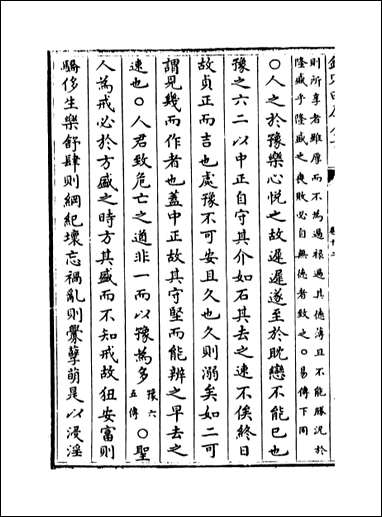 則所享者雖厚而不為過祿過其德薄且不能勝况於
隆盛乎隆盛之喪敗必自無德者致之○易傳下同
○人之於豫樂心悅之故遲遲遂至於耽戀不能已也
豫之六二以中正自守其介如石其去之速不俟終日
故貞正而吉也處豫不可安且久也久則溺矣如二可
謂見幾而作者也蓋中正故其守堅而能辨之早去之
速也○人君致危亡之道非一而以豫為多 豫六五傳 ○聖
人為戒必於方盛之時方其盛而不知戒故狃安富則
驕侈生樂舒肆則綱紀壞忘禍亂則釁孽萌是以浸淫